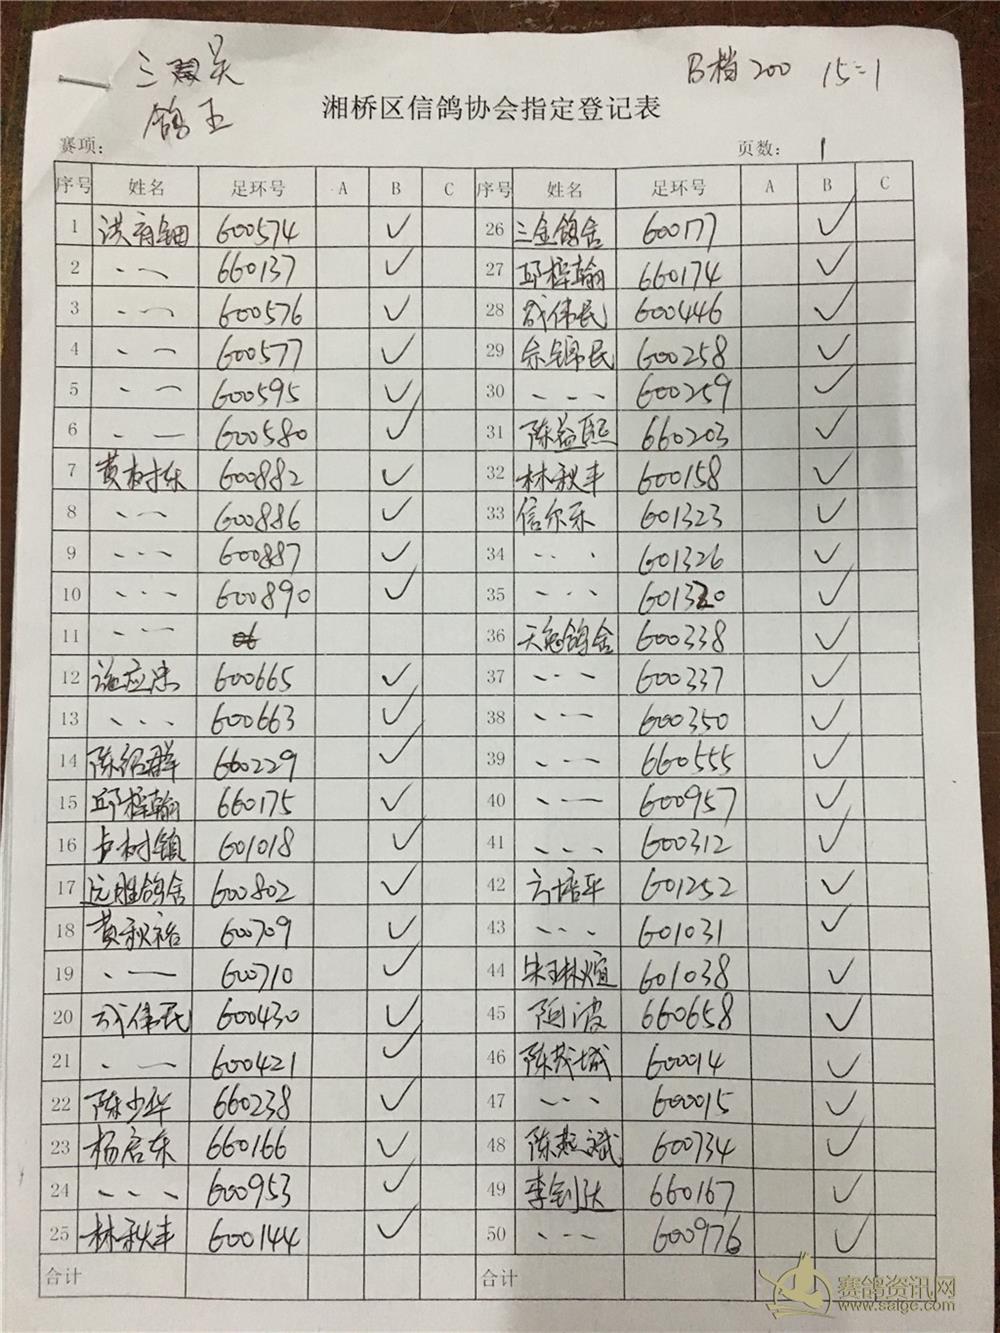 三 吴
鸽王
B档 200 15=1
湘桥区信鸽协会指定登记表
赛项: 页数: 1
序号 姓名 足环号 A B C 序号 姓名 足环号 A B C
1 洪有钿 600574 ✓ 26 三金鸽舍 600177 ✓
2 、、一 660137 ✓ 27 邱梓翰 660174 ✓
3 、、一 600576 ✓ 28 成伟民 600446 ✓
4 、、一 600577 ✓ 29 余锦民 600258 ✓
5 、一 600595 ✓ 30 、、、 600259 ✓
6 、、一 600580 ✓ 31 陈益熙 660203 ✓
7 黄树东 600882 ✓ 32 林秋丰 600158 ✓
8 、、一 600886 ✓ 33 信尔乐 601323 ✓
9 、、一 600887 ✓ 34 、、、 601326 ✓
10 、、、 600890 ✓ 35 、、、 601320 ✓
11 、、一 36 鸽舍 600338 ✓
12 600665 ✓ 37 、、、 600337 ✓
13 、、、 600663 ✓ 38 、、一 600350 ✓
14 陈绍群 660229 ✓ 39 、、一 660555 ✓
15 邱梓翰 660175 ✓ 40 、、一 600957 ✓
16 卢树镇 601018 ✓ 41 、、、 600312 ✓
17 远胜鸽舍 600802 ✓ 42 方培平 601252 ✓
18 黄秋裕 600709 ✓ 43 、、、 601031 ✓
19 、一 600710 ✓ 44 601038 ✓
20 成伟民 600430 ✓ 45 阿波 660658 ✓
21 、一 600421 ✓ 46 陈茂城 600014 ✓
22 陈少华 660238 ✓ 47 、、、 600015 ✓
23 杨启东 660166 ✓ 48 陈斌 600734 ✓
24 、、、 600953 ✓ 49 李钊达 660167 ✓
25 林秋丰 600144 ✓ 50 、、一 600976 ✓
合计 合计
赛鸽资讯网
www.saige.com